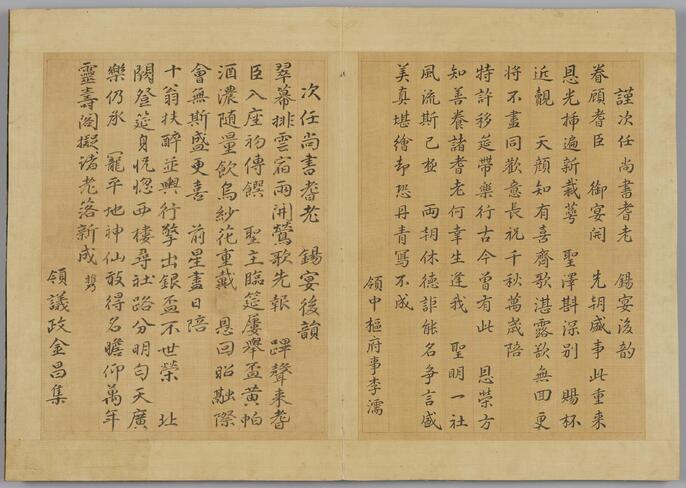 謹次任尚書耆老　錫宴後韵
眷顧耆臣　御宴開　先朝盛事此重來
恩光揷遍新裁萼　聖澤斟深別　賜杯
近覩　天顔知有喜齊歌湛露歎無回更
將不盡同歡意長祝千秋萬歲陪
特許移筵帶樂行古今曾有此　恩榮方
知善養諸耆老何幸生逢我　聖明一社
風流斯已極　兩朝休德詎能名爭言盛
美真堪繪却恐丹青寫不成
領中樞府事李濡
次任尚書耆老　錫宴後韻
翠幕排雲宿雨開鶯歌先報　蹕聲来耆
臣入座初傳饌　聖主臨筵屢舉盃黃帕
酒濃隨量飲烏紗花重戴　恩回昭融際
會無斯盛更喜　前星盡日陪
十翁扶醉並輿行擎出銀盃不世榮　北
闕登筵身怳惚西樓尋社路分明匀天廣
樂仍承　寵平地神仙敢得名瞻仰萬年
靈壽閣擬諸老落新成
領議政金昌集